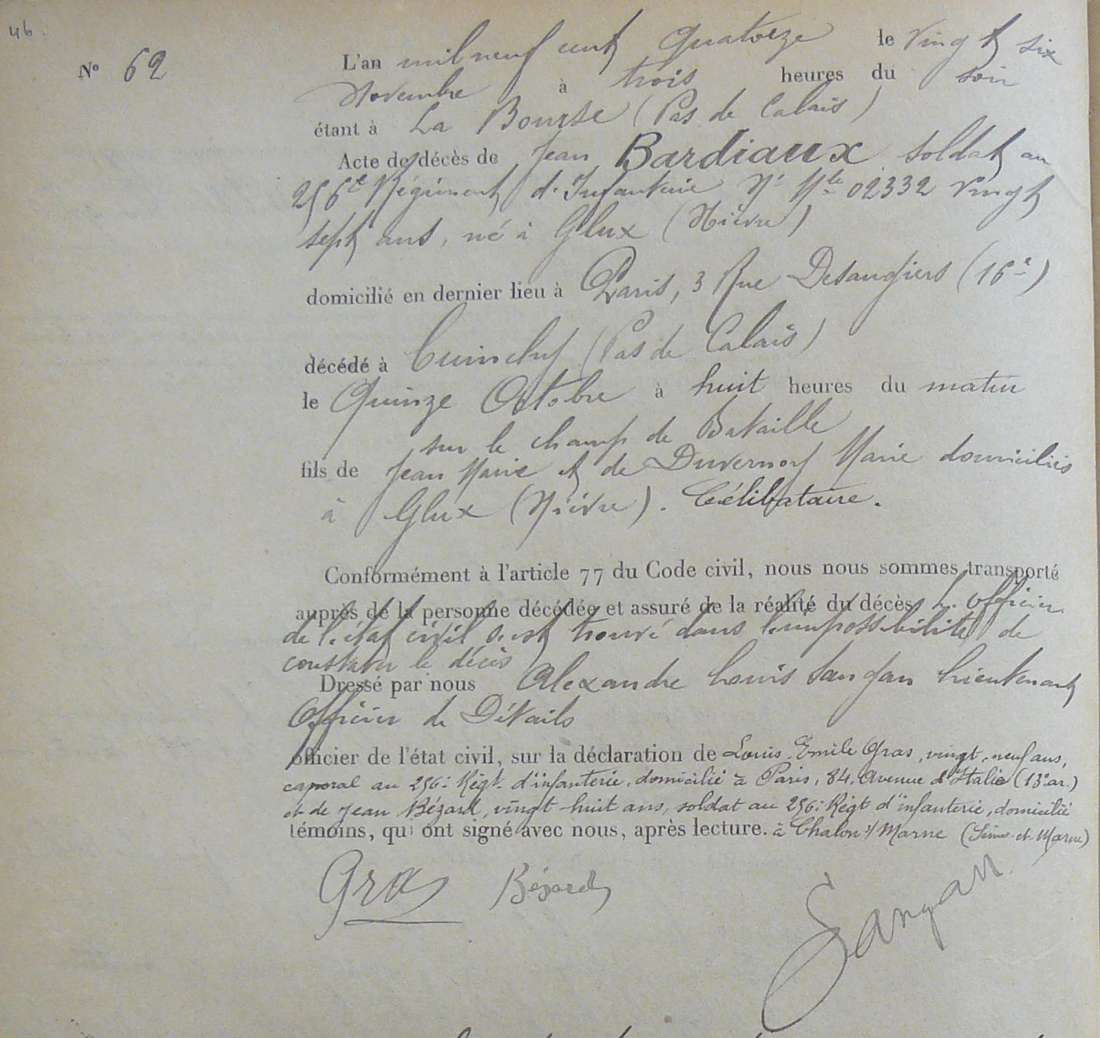 46.
N° 62
L'an mil neuf cent quatorze le vingt six
Novembre à trois heures du soir
étant à La Bourse (Pas de Calais)
Acte de décès de Jean Bardiaux soldat au
256e Régiment d'Infanterie N° Mle 02332 vingt
sept ans, né à Glux (Nièvre)
domicilié en dernier lieu à Paris, 3 Rue Desaugiers (16e)
décédé à Cuinchy (Pas de Calais)
le Quinze Octobre à huit heures du matin
sur le champ de Bataille
fils de Jean Marie et de Duvernoy Marie domiciliés
à Glux (Nièvre). Célibataire.
Conformément à l'article 77 du Code civil, nous nous sommes transporté
auprès de la personne décédée et assuré de la réalité du décès. L'officier
de l'état civil s'est trouvé dans l'impossibilité de
constater le décès
Dressé par nous Alexandre Louis Sangan Lieutenant
Officier de Détails
officier de l'état civil, sur la déclaration de Louis Emile Gras, vingt-neuf ans,
caporal au 256e Régt d'infanterie, domicilié à Paris, 84, Avenue d'Italie (13e ar.)
et de Jean Bézard, vingt-huit ans, soldat au 256e Régt d'infanterie, domicilié
témoins, qui ont signé avec nous, après lecture. à Chalon s/ Marne (Seine et Marne)
Gras Bézard
Sangan